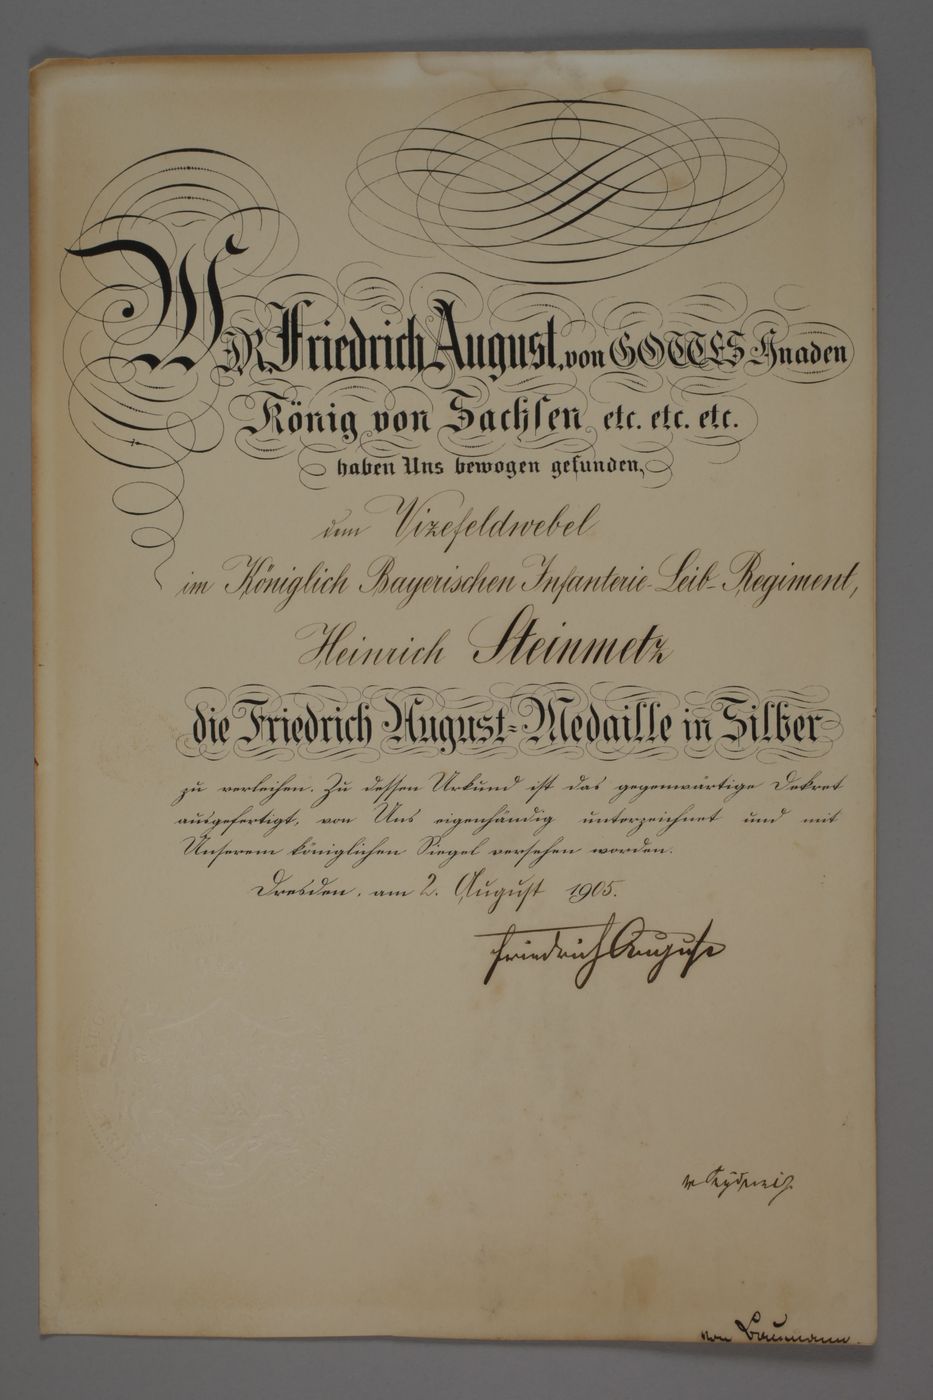 WIR Friedrich August, von GOTTES Gnaden
König von Sachsen etc. etc. etc.
haben Uns bewogen gefunden,
dem Vizefeldwebel
im Königlich Bayerischen Infanterie-Leib-Regiment,
Heinrich Steinmetz
die Friedrich August-Medaille in Silber
zu verleihen. Zu dessen Urkund ist das gegenwärtige Dekret
ausgefertigt, von Uns eigenhändig unterzeichnet und mit
Unserem königlichen Siegel versehen worden.
Dresden, am 2. August 1905.
Friedrich August
von Baumann